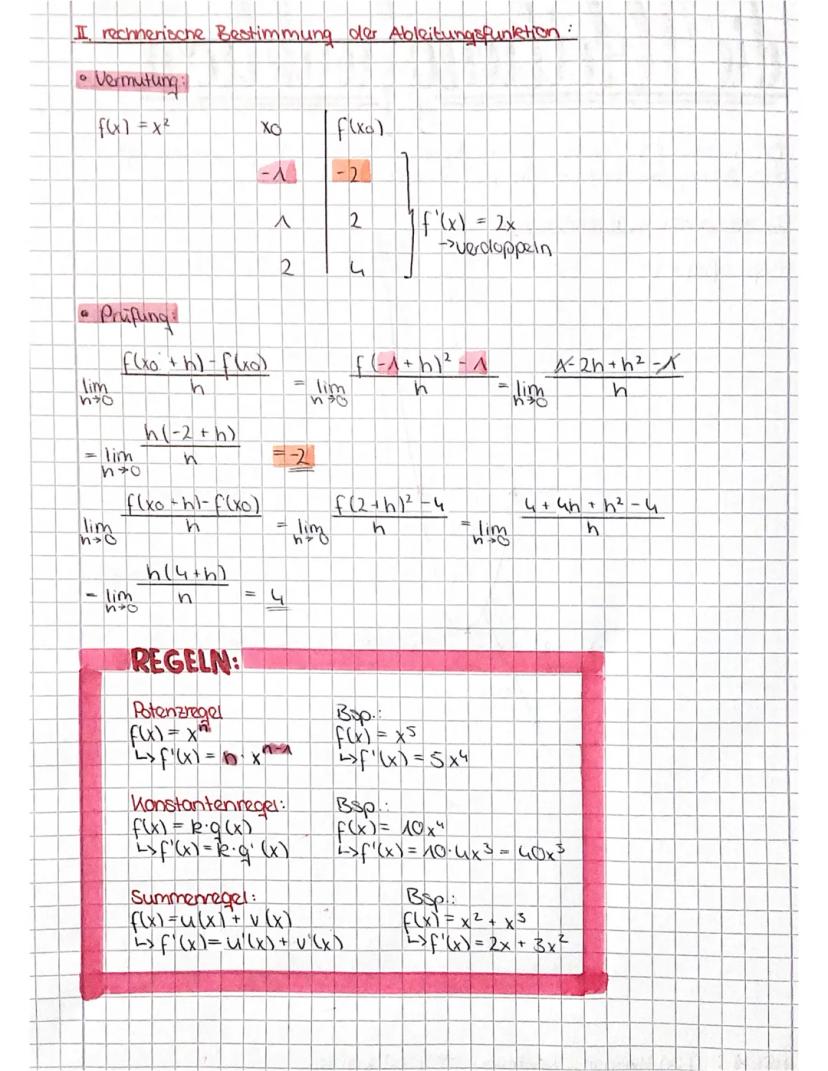 II. rechnerische Bestimmung der Ableitungsfunktion:
• Vermutung:
f(x) = x² x0 f(x0)
-1 -2
1 2 f'(x) = 2x
→verdoppeln
2 4
• Prüfung:
lim h→0 (f(x0 + h) - f(x0))/h = lim h→0 (f(-1 + h)² - 1)/h = lim h→0 (1 - 2h + h² - 1)/h
= lim h→0 (h(-2 + h))/h = -2
lim h→0 (f(x0 + h) - f(x0))/h = lim h→0 (f(2 + h)² - 4)/h = lim h→0 (4 + 4h + h² - 4)/h
= lim h→0 (h(4 + h))/h = 4
REGELN:
Potenzregel Bsp.:
f(x) = xⁿ f(x) = x⁵
↳f'(x) = n · xⁿ⁻¹ ↳f'(x) = 5x⁴
Konstantenregel: Bsp.:
f(x) = k·g(x) f(x) = 10x⁴
↳f'(x) = k·g'(x) ↳f'(x) = 10·4x³ = 40x³
Summenregel: Bsp.:
f(x) = u(x) + v(x) f(x) = x² + x³
↳f'(x) = u'(x) + v'(x) ↳f'(x) = 2x + 3x²